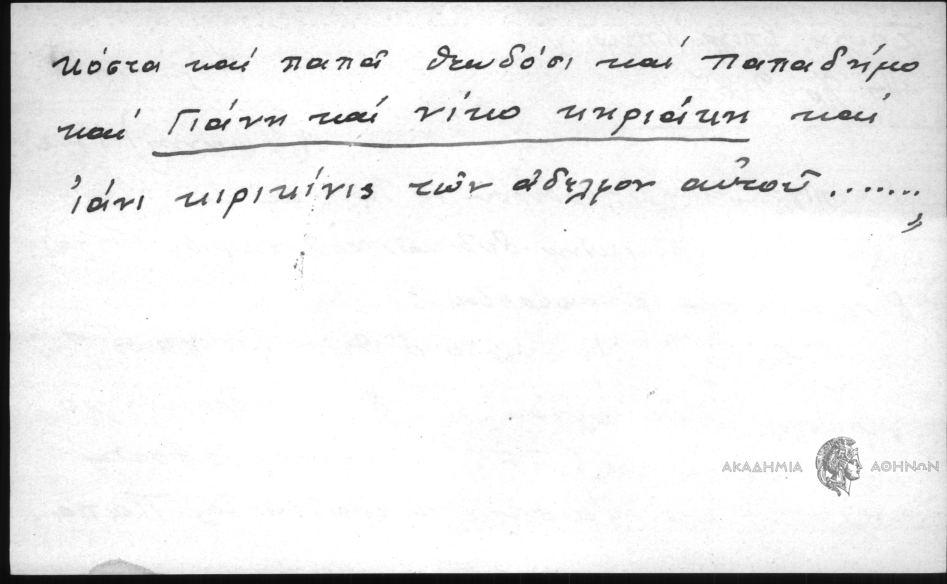 κόστα καί παπᾶ θεωδόσι καί παπαδήμο
καί Γιάνη καί νίκο κηριάκη καί
ἰάνι κιρικίνις τῶν ἀδελφον αὐτοῦ .......
"
ΑΚΑΔΗΜΙΑ ΑΘΗΝΩΝ